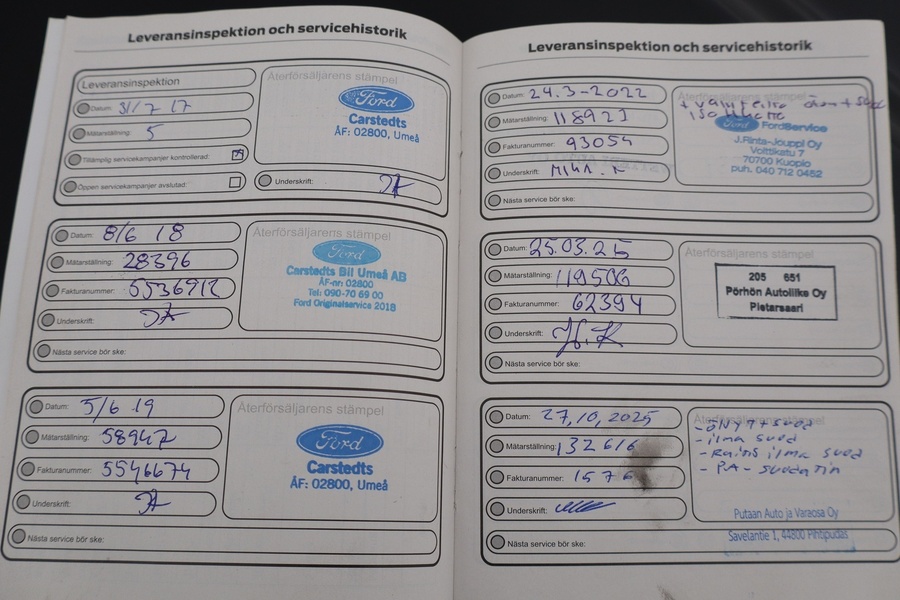 Leveransinspektion och servicehistorik
Leveransinspektion
Datum: 31/7 17
Mätarställning: 5
Tillämplig servicekampanjer kontrollerad:
Öppen servicekampanjer avslutad:
Återförsäljarens stämpel
Ford
Carstedts
ÅF: 02800, Umeå
Underskrift:
Datum: 8/6 18
Mätarställning: 28396
Fakturanummer: 5536912
Underskrift:
Nästa service bör ske:
Återförsäljarens stämpel
Ford
Carstedts Bil Umeå AB
ÅF-nr: 02800
Tel: 090-70 69 00
Ford Originalservice 2018
Datum: 5/6 19
Mätarställning: 58947
Fakturanummer: 5546674
Underskrift:
Nästa service bör ske:
Återförsäljarens stämpel
Ford
Carstedts
ÅF: 02800, Umeå
Leveransinspektion och servicehistorik
Datum: 24.3-2022
Mätarställning: 118923
Fakturanummer: 93054
Underskrift: Mika. N
Nästa service bör ske:
Återförsäljarens stämpel
Ford FordService
J.Rinta-Jouppi Oy
Volttikatu 7
70700 Kuopio
puh. 040 712 0452
Datum: 25.03.25
Mätarställning: 119506
Fakturanummer: 62394
Underskrift: H.K
Nästa service bör ske:
Återförsäljarens stämpel
205 651
Pörhön Autoliike Oy
Pietarsaari
Datum: 27,10,2025
Mätarställning: 132616
Fakturanummer: 1576
Underskrift:
Nästa service bör ske:
Återförsäljarens stämpel
- ÖLJYT + suod
- ilma suod
- Raitis ilma suod
- PA- suodatin
Putaan Auto ja Varaosa Oy
Savelantie 1, 44800 Pihtipudas